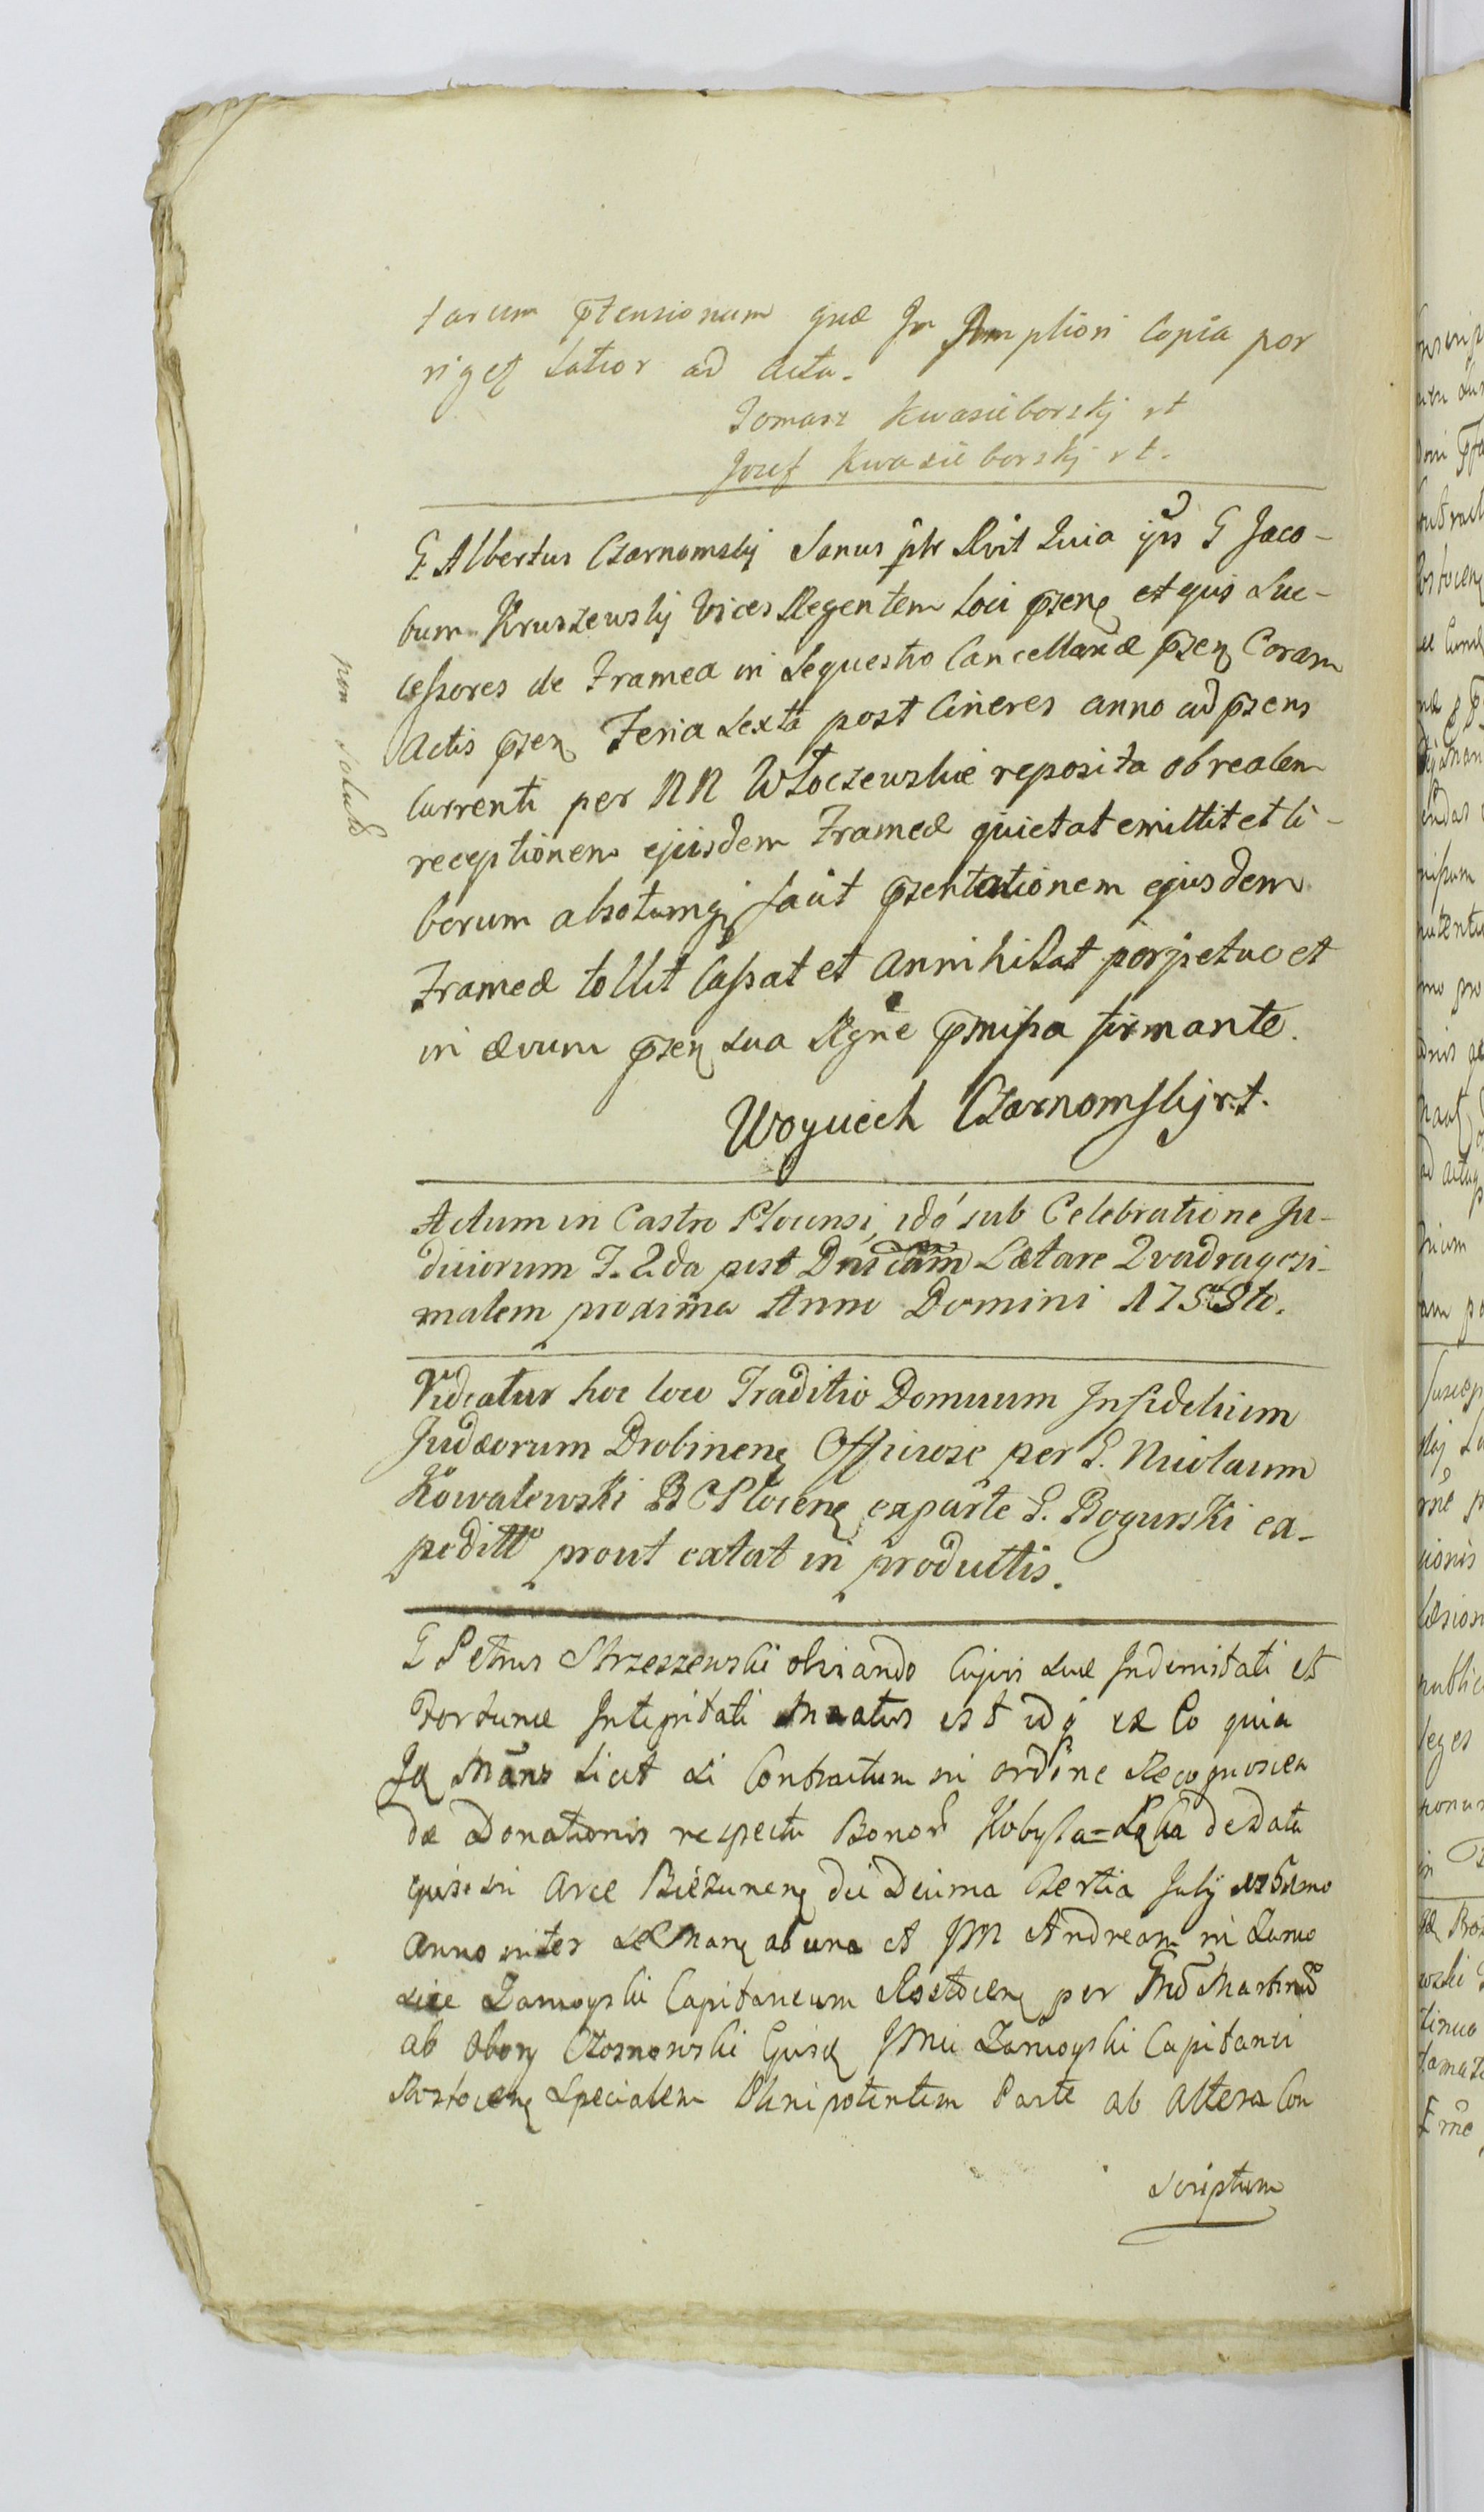 tarum ptensionum quæ In Jmpliori Copia por
rigetꝫ Latior ad acta.
Tomasz Kwasieborskj rt
Jozef Kwasieborskj rt.
G. Albertus Czarnomskij Sanus ptr Rvit Quia ips G Jaco-
bum Kruszewskij Vices Regentem Loci pzenꝫ et ejus Suc-
ceßores de Framea in Sequestro Cancellariæ pzenꝫ Coram
Actis pzenꝫ Feria Sexta post Cineres anno ad pzens
Currenti per NN Włoczewskie reposita ob realem
receptionem ejusdem Frameæ quietat emittit et li-
berum absolumqꝫ facit pzentationem ejusdem
Frameæ tollit Caßat et Annihilat perpetuo et
in ævum pzenꝫ sua Rgne pmißa firmante.
Woyciech Czarnomskij r.t.
non valuit
Actum in Castro Plocensi, idó sub Celebratione Ju-
diciorum F. 2.da post Dnicam Lætare Quadragesi-
malem proxima Anno Domini 1758tó.
Videatur hoc loco Traditio Domuum Infidelium
Judæorum Drobinenꝫ Officiose per G. Nicolaum
Kowalewski BCPlocenꝫ ex parte G. Bogurski ex-
peditꝫ prout extat in productis.
G Petrus Strzeszewski obviando Cujus suæ Indemitati et
Fortunæ Integritati Mnatus est idqꝫ ex Eo quia
Iꝫ Mans licet si Contractum in ordine Recognoscen
dæ Donationis respectu Bonorꝫ Kobyla=Łąka de Data
ejus in Arce Bieżunenꝫ die Decima Tertia July
anno inter se Manꝫ ab una et JM Andream in Zamo
scie Zamoyski Capitaneum Rostocenꝫ per Gnd Martinum
ab Obory Czosnowski Ejusꝫ JMci Zamoyski Capitanei
Rostocenꝫ Specialem Plenipotentem Parte ab Altera Con
scriptum